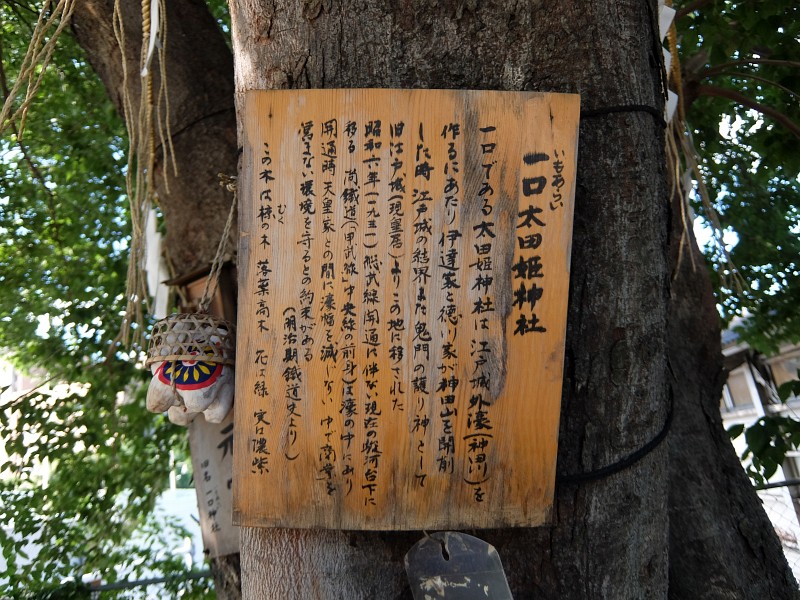 いもあらい
一口太田姫神社
一口である太田姫神社は江戸城外濠(神田川)を
作るにあたり伊達家と徳川家が神田山を開削
した時江戸城の結界また鬼門の護り神として
旧江戸城(現皇居)よりこの地に移された
昭和六年(一九三一)総武線開通に伴ない現在の駿河台下に
移る 尚鐵道(「甲武線」中央線の前身)は濠の中にあり
開通時天皇家との間に濠幅を減じない中で商業を
営まない環境を守るとの約束がある
(明治期鐵道史より)
むく
この木は椋の木 落葉高木 花は緑 実は濃紫
元
旧名 一口神社